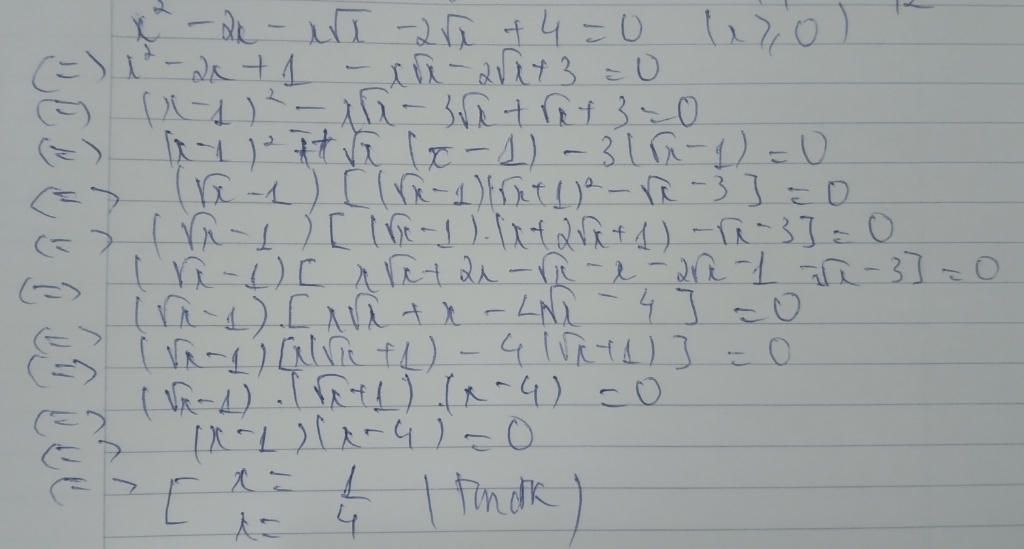 x² - 2x - x√x - 2√x + 4 = 0 (x ⩾ 0)
(=) x² - 2x + 1 - x√x - 2√x + 3 = 0
(=) (x-1)² - x√x - 3√x + √x + 3 = 0
(=) (x-1)² √x (x-1) - 3(√x-1) = 0
(=> (√x-1) [(√x-1)(√x+1)² - √x - 3] = 0
(=> (√x-1) [(√x-1).(x+2√x+1) - √x - 3] = 0
(=) (√x-1) [x√x + 2x - √x - x - 2√x - 1 - √x - 3] = 0
(=> (√x-1).[x√x + x - 4√x - 4] = 0
(=> (√x-1)[x(√x+1) - 4(√x+1)] = 0
(=> (√x-1).(√x+1).(x-4) = 0
(=> (x-1)(x-4) = 0
(=> [ x = 1
x = 4 (tmđk)